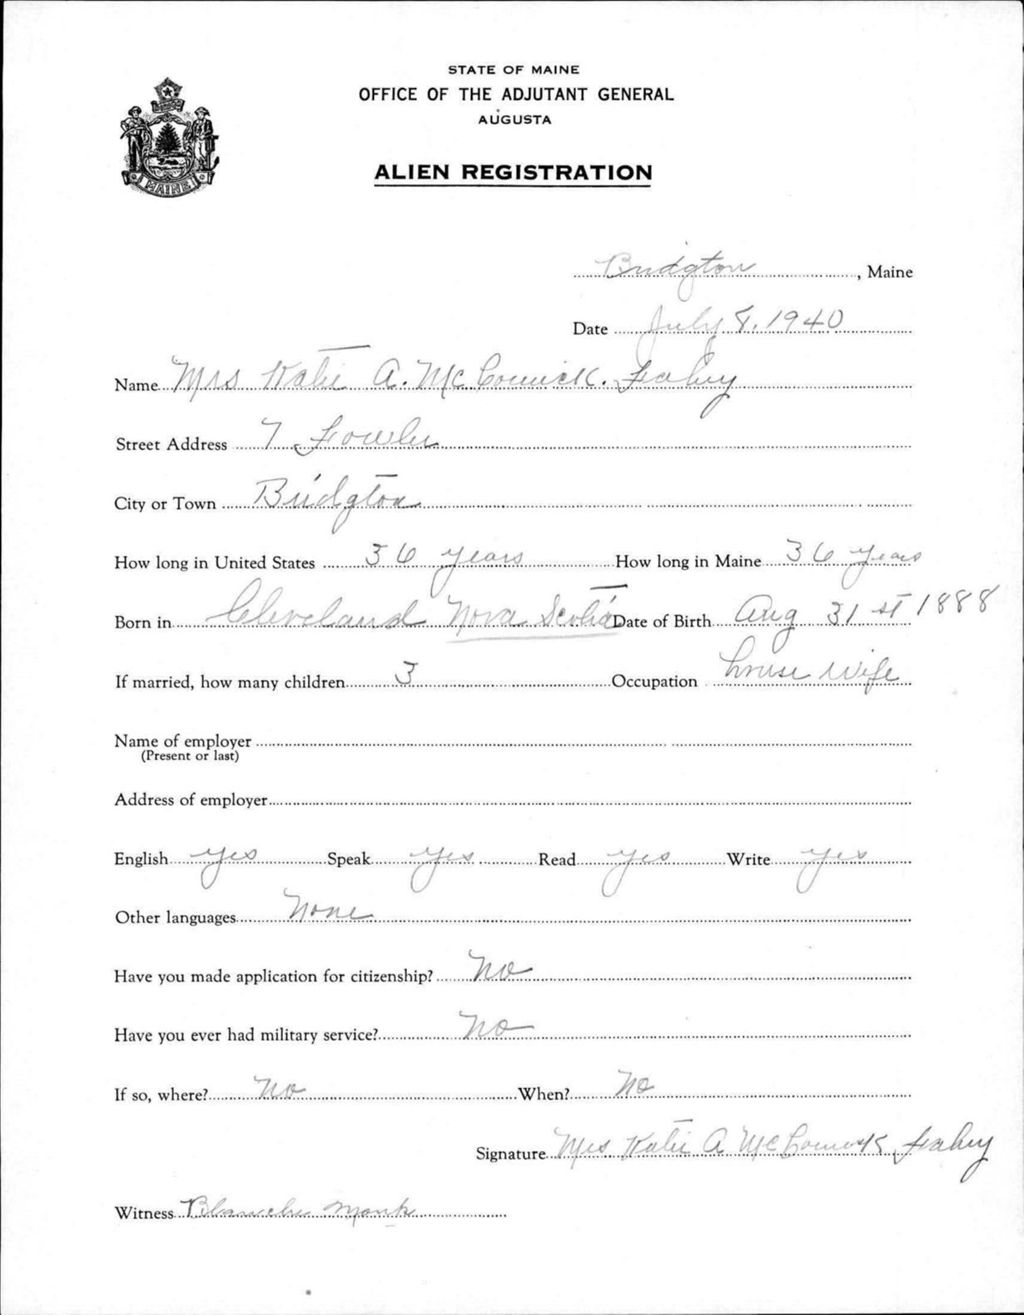 STATE OF MAINE
OFFICE OF THE ADJUTANT GENERAL
AUGUSTA
ALIEN REGISTRATION
MAINE
Bridgton, Maine
Date July 8. 1940
Name Mrs Katie A. McCormick. Fahey
Street Address 7 Fowler
City or Town Bridgton
How long in United States 36 years How long in Maine 36 years
Born in Cleveland Nova Scotia Date of Birth Aug 31st 1888
If married, how many children 3 Occupation house wife
Name of employer
(Present or last)
Address of employer
English yes Speak yes Read yes Write yes
Other languages None
Have you made application for citizenship? No
Have you ever had military service? No
If so, where? No When? No
Signature Mrs Katie A McCormick Fahey
Witness Blanche Monk